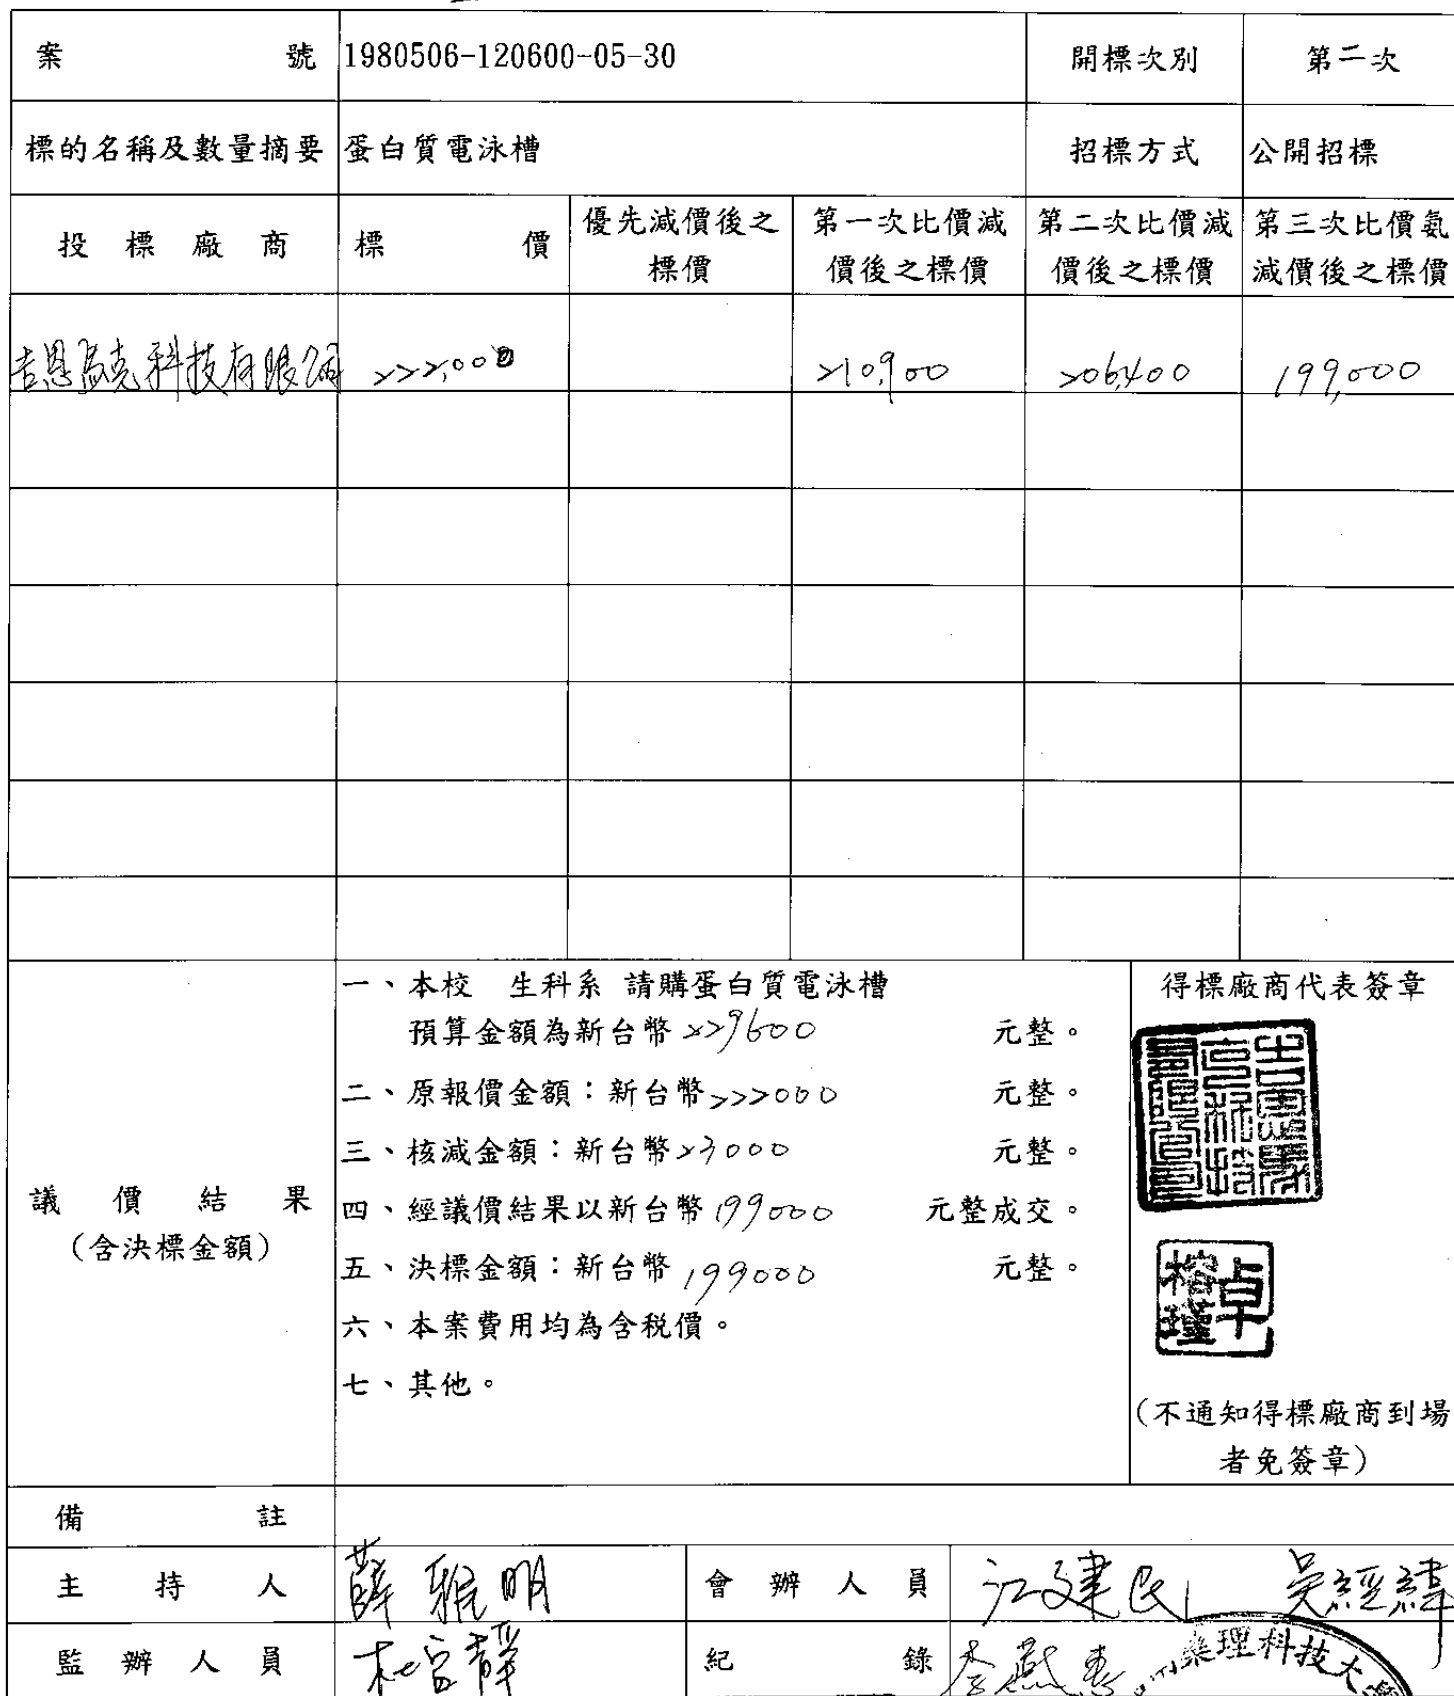 案號 1980506-120600-05-30 開標次別 第二次
標的名稱及數量摘要 蛋白質電泳槽 招標方式 公開招標
投標廠商 標價 優先減價後之標價 第一次比價減價後之標價 第二次比價減價後之標價 第三次比價氨減價後之標價
吉恩馬克科技有限公司 222,000 210,900 206,400 199,000
議價結果
(含決標金額)
一、本校 生科系 請購蛋白質電泳槽
預算金額為新台幣 229600 元整。
二、原報價金額:新台幣 222000 元整。
三、核減金額:新台幣 23000 元整。
四、經議價結果以新台幣 199000 元整成交。
五、決標金額:新台幣 199000 元整。
六、本案費用均為含稅價。
七、其他。
得標廠商代表簽章
卓
(不通知得標廠商到場
者免簽章)
備註
主持人 薛雅明 會辦人員 江建民 吳經緯
監辦人員 紀錄
藥理科技大學